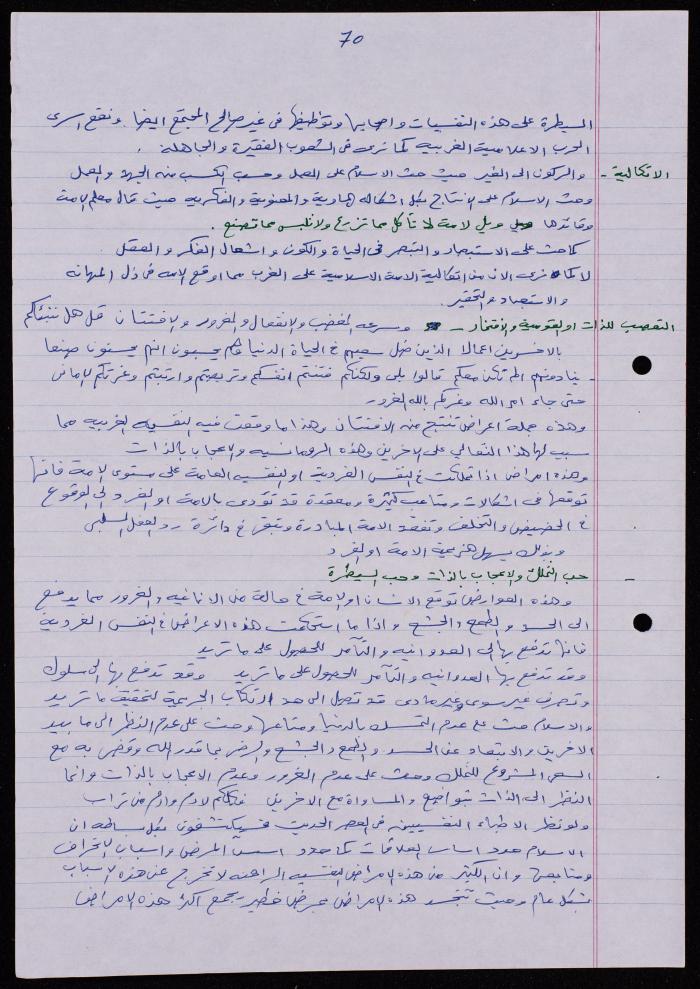 70
السيطرة على هذه النفسيات واحبابها وتوظيفها في غير صالح المجتمع ايضا ونقع اسرى
الحرب الاعلامية الغربية كما نرى في الشعوب الفقيرة والجاهلة .
الاتكالية - والركون الى الغير حيث حث الاسلام على العمل وحب الكسب من الجهد والعمل
وحث الاسلام على الانتاج بكل اشكاله المادية والمعنوية والفكرية حيث قال معلم الامة
وقائدها ويل لامة لا تأكل مما تزرع ولا تلبس مما تصنع .
كما حث على الاستبصار والتبصر في الحياة والكون واشعال الفكر والعقل
لا كما نرى الان من اتكالية الامة الاسلامية على الغرب مما اوقع الامه في ذل المهانه
والاستعباد والتحقير .
التعصب للذات او القومية والافتخار - وسرعه الغضب والانفعال والغرور والافتتان قل هل ننبئكم
بالاخسرين اعمالا الذين ضل سعيهم في الحياة الدنيا وهم يحسبون انهم يحسنون صنعا
- ينادونهم الم نكن معكم قالوا بلى ولكنكم فتنتم انفسكم وتربصتم وارتبتم وغرتكم الاماني
حتى جاء امر الله وغركم بالله الغرور
وهذه جملة اعراض تنتج من الافتتان وهذا ما وقعت فيه النفسيه الغربيه مما
سبب لها هذا التعالي على الاخرين وهذه الرومانسيه والاعجاب بالذات
وهذه امراض اذا تملكت في النفس الفردية او النفسيه العامة على مستوى الامة فانها
توقعها في اشكالات ومتاعب كثيرة ومعقدة قد تؤدي بالامة او الفرد الى الوقوع
في الحضيض والتخلف وتفقد الامة المبادرة وتبقى في دائرة رد الفعل السلبي
وبذلك يسهل هزيمة الامة او الفرد
- حب التملك والاعجاب بالذات وحب السيطرة
وهذه العوارض توقع الانسان او الامة في حالة من الانانيه والغرور مما يدفع
الى الحسد والطمع والجشع واذا ما استحكمت هذه الاعراض في النفس الفردية
فانها تدفع بها الى العدوانيه والتآمر للحصول على ما تريد
وقد تدفع بها العدوانيه والتآمر للحصول على ما تريد وقد تدفع بها الى سلوك
وتصرف غير سوي وغير مادي قد تصل الى حد ارتكاب الجريمة لتحقيق ما تريد
والاسلام حث على عدم التمسك بالدنيا ومتاعها وحث على عدم النظر الى ما بيد
الاخرين والابتعاد عن الحسد والطمع والجشع والرضى بما قدر الله وقضى به مع
السعي المشروع للتملك وحث على عدم الغرور وعدم الاعجاب بالذات وانما
النظر الى الذات بتواضع والمساواة مع الاخرين فكلكم لادم وادم من تراب
ولو نظر الاطباء النفسيين في العصر الحديث فسيكتشفون بكل بساطه ان
الاسلام حدد اساس العلاقات كما حدد اسس المرض واسباب الانحراف
ومنابعها وان الكثير من هذه الامراض النفسيه الراهنه لا تخرج عن هذه الاسباب
بشكل عام وحيث تتجسد هذه الامراض بمرض خطير يجمع اكثر هذه الامراض